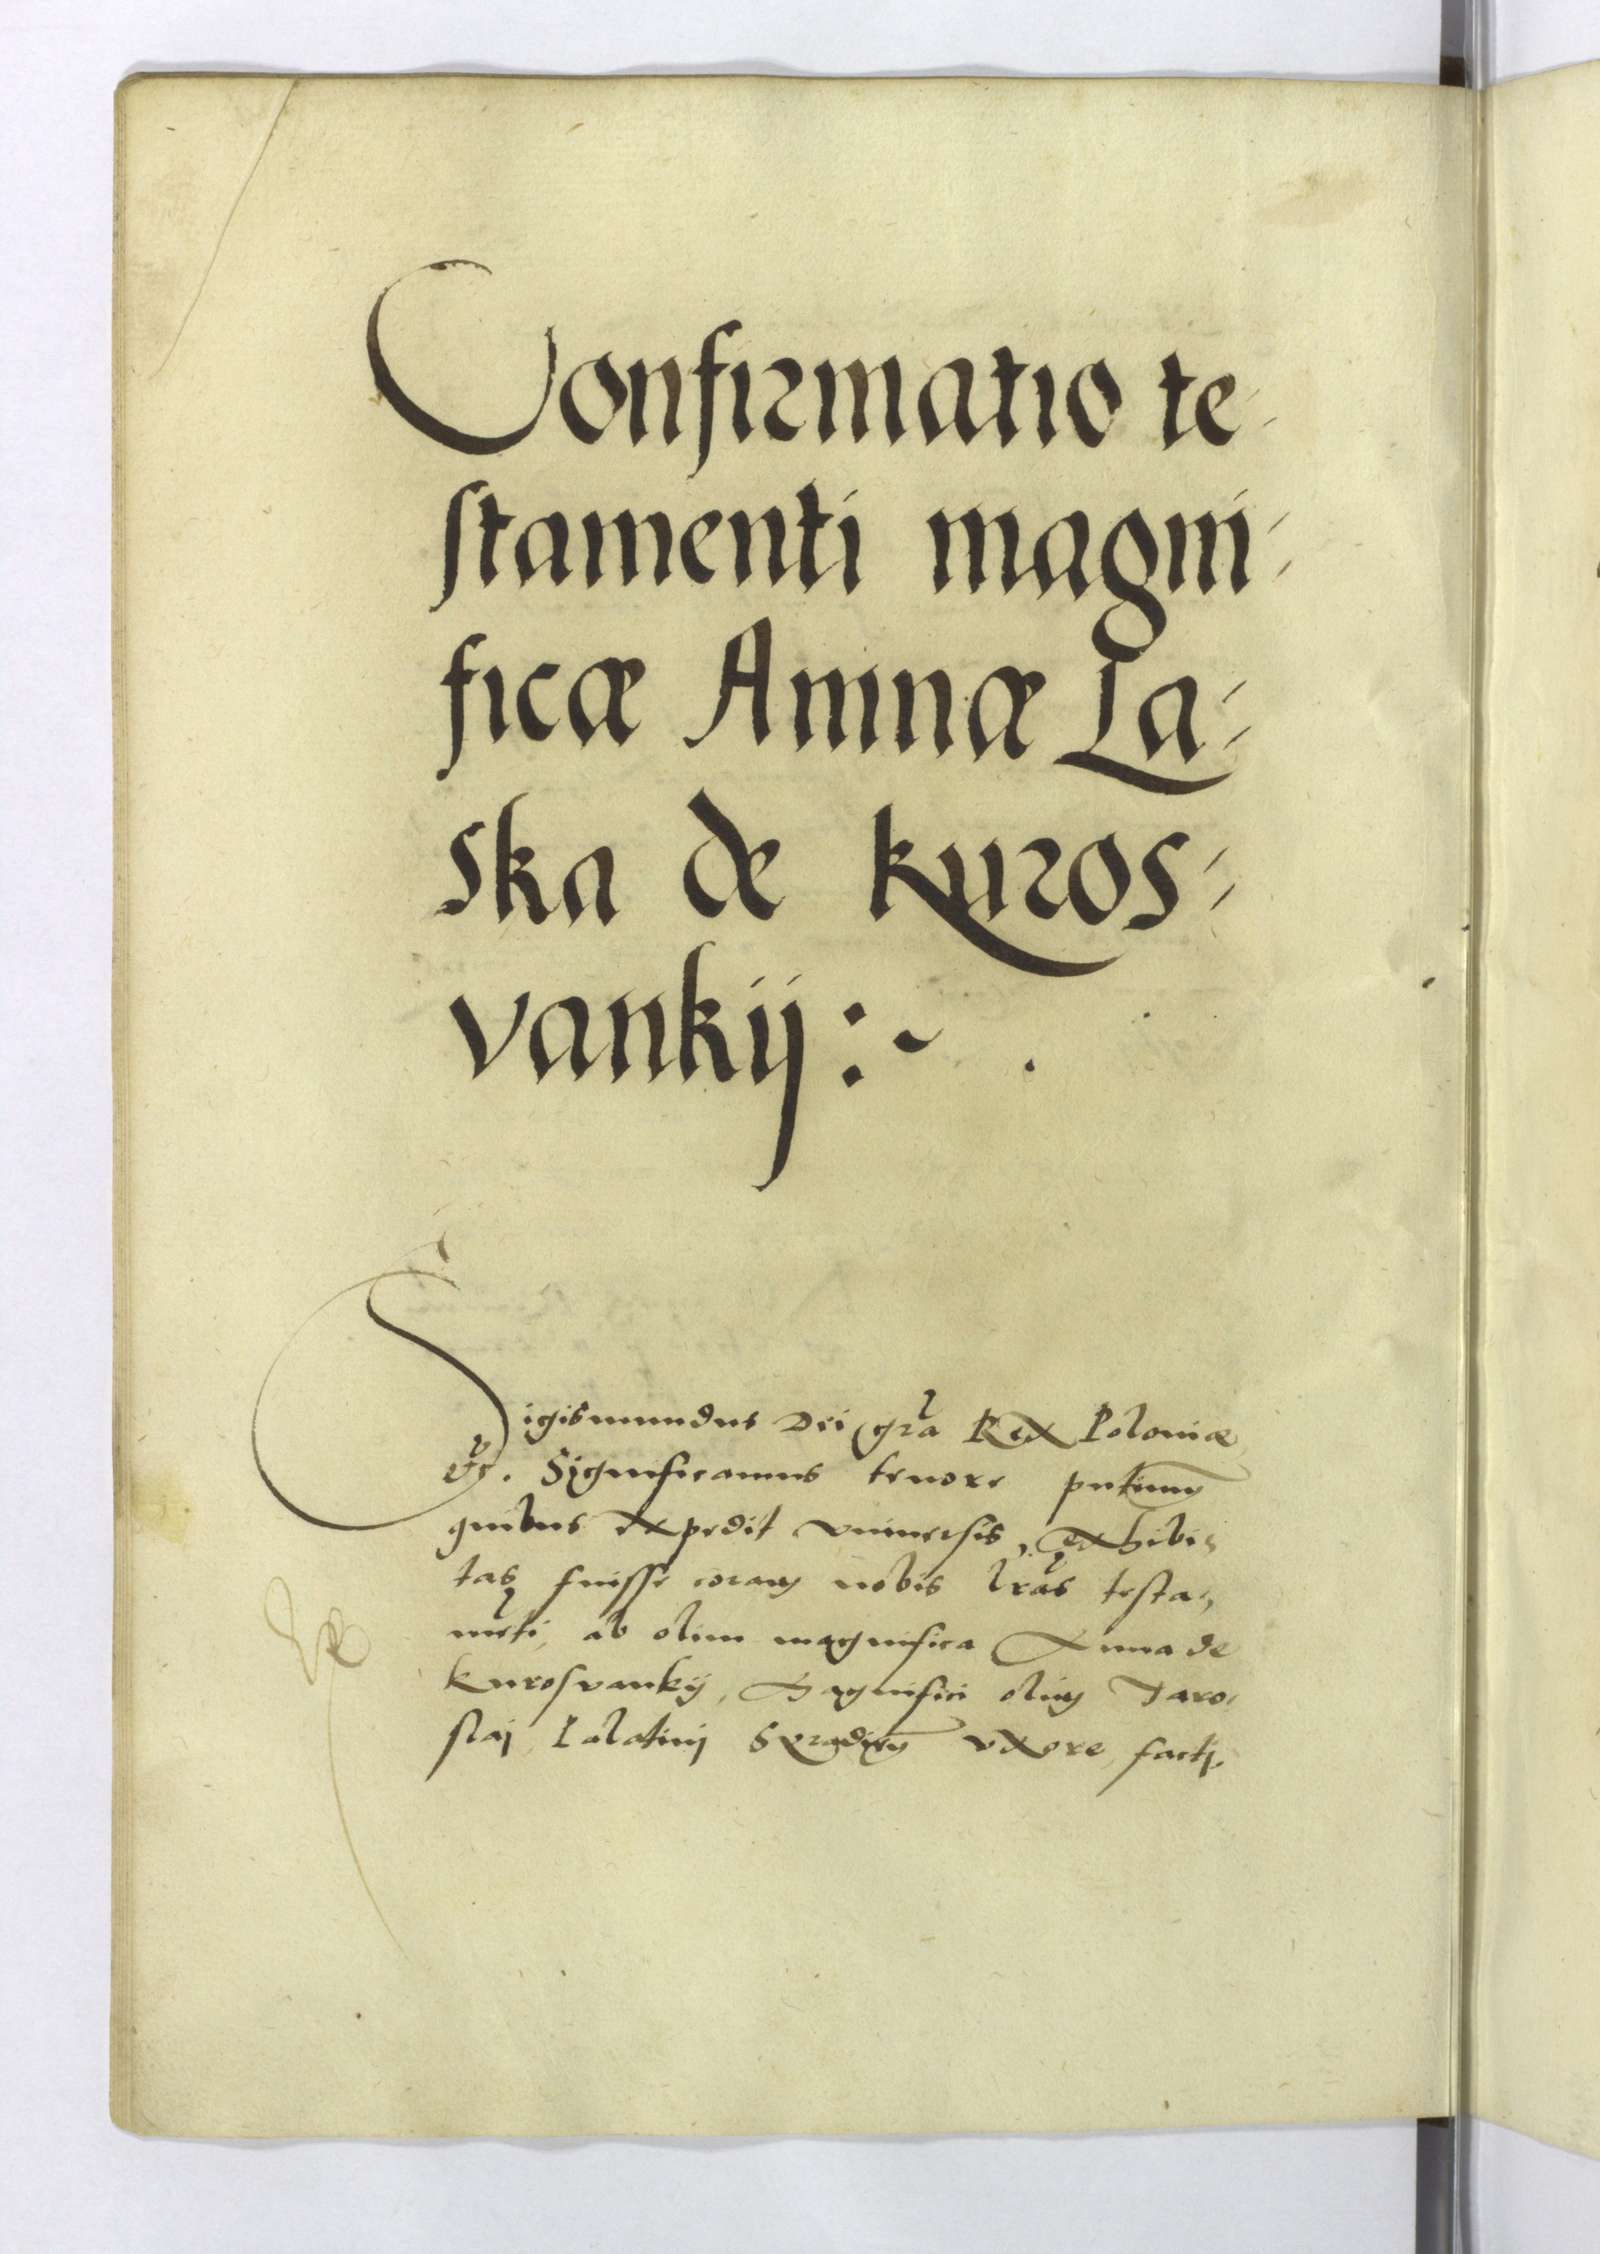 Confirmatio te-
stamenti magni-
ficæ Annnæ La-
ska de Kuros-
vankij:~.
Sigismundus Dei gra Rex Poloniæ
etc. Significamus tenore pntium
quibus expedit vniuersis, exhibi-
tas fuisse coram nobis lras testa-
meti, ab olim magnifica Anna de
Kurosvankij, Magnifici olim Jaro-
slaj Palatinj Syradien vxore, facti